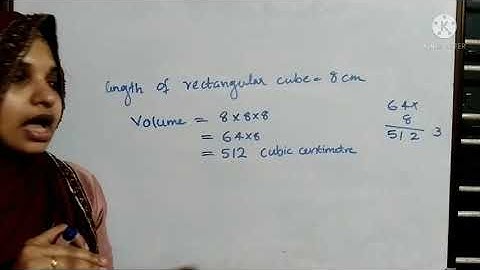 length of rectangular cube = 8 cm
Volume = 8 × 8 × 8
= 64 × 8
= 512 cubic centimetre
64 ×
8
512 3